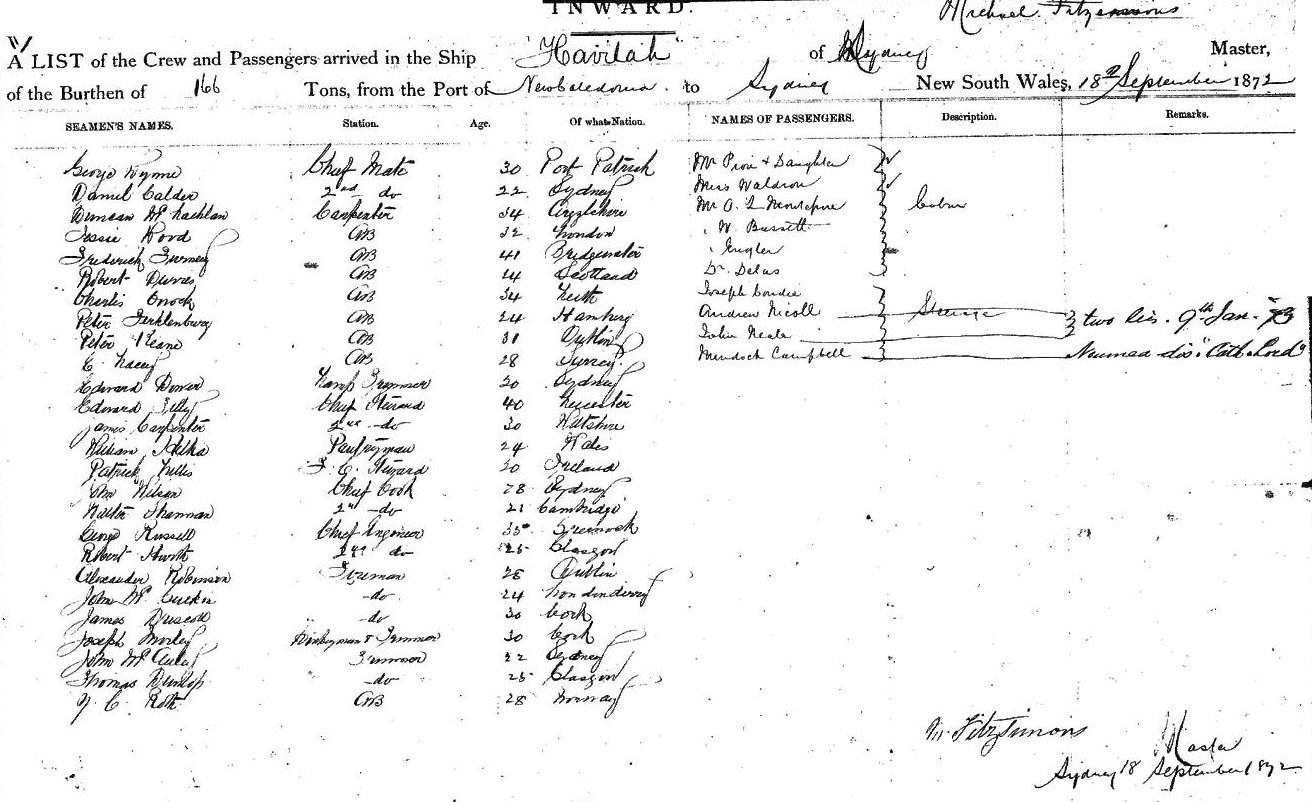 INWARD.
Michael Fitzsimmons
A LIST of the Crew and Passengers arrived in the Ship "Havilah" of Sydney Master,
of the Burthen of 166 Tons, from the Port of New Caledonia to Sydney New South Wales, 18th September 1872
SEAMEN'S NAMES. Station. Age. Of what Nation. NAMES OF PASSENGERS. Description. Remarks.
George Wynne Chief Mate 30 Port Patrick Mr & Daughter
Daniel Calder 2nd do 22 Sydney Miss Waldron
Duncan McLachlan Carpenter 34 Argylshire Mr A. L Montefiore Cabin
Jessie Wood AB 32 London " W. Bassett
Frederick AB 41 Bridgewater " Engler
Robert AB 24 Scotland Dr. Delas
Charles AB 34 Leith Joseph
Peter AB 24 Hamburg Andrew Nicoll Steerage two lis. 9th Jan. 73
Peter Keane AB 31 Dublin John Neale
E. Lacey AB 28 Surrey Murdoch Campbell Noumea dis "Cath. Lord"
Edward Bower Lamp Trimmer 20 Sydney
Edward Chief Steward 40 Leicester
James Carpenter 2nd do 30 Wiltshire
William Pantryman 24 Wales
Patrick F. C. Steward 20 Ireland
John Wilson Chief Cook 28 Sydney
Walter Shannan 2nd do 21 Cambridge
George Russell Chief Engineer 35 Greenock
Robert 2nd do 25 Glasgow
Alexander Robinson Fireman 28 Dublin
John Mc do 24 Londonderry
James Driscoll do 30 Cork
Joseph Donkeyman & Trimmer 30 Cork
John Mc Trimmer 22 Sydney
Thomas Dunlop do 25 Glasgow
C. Roth AB 28 Norway
M. FitzSimons
Master
Sydney 18 September 1872